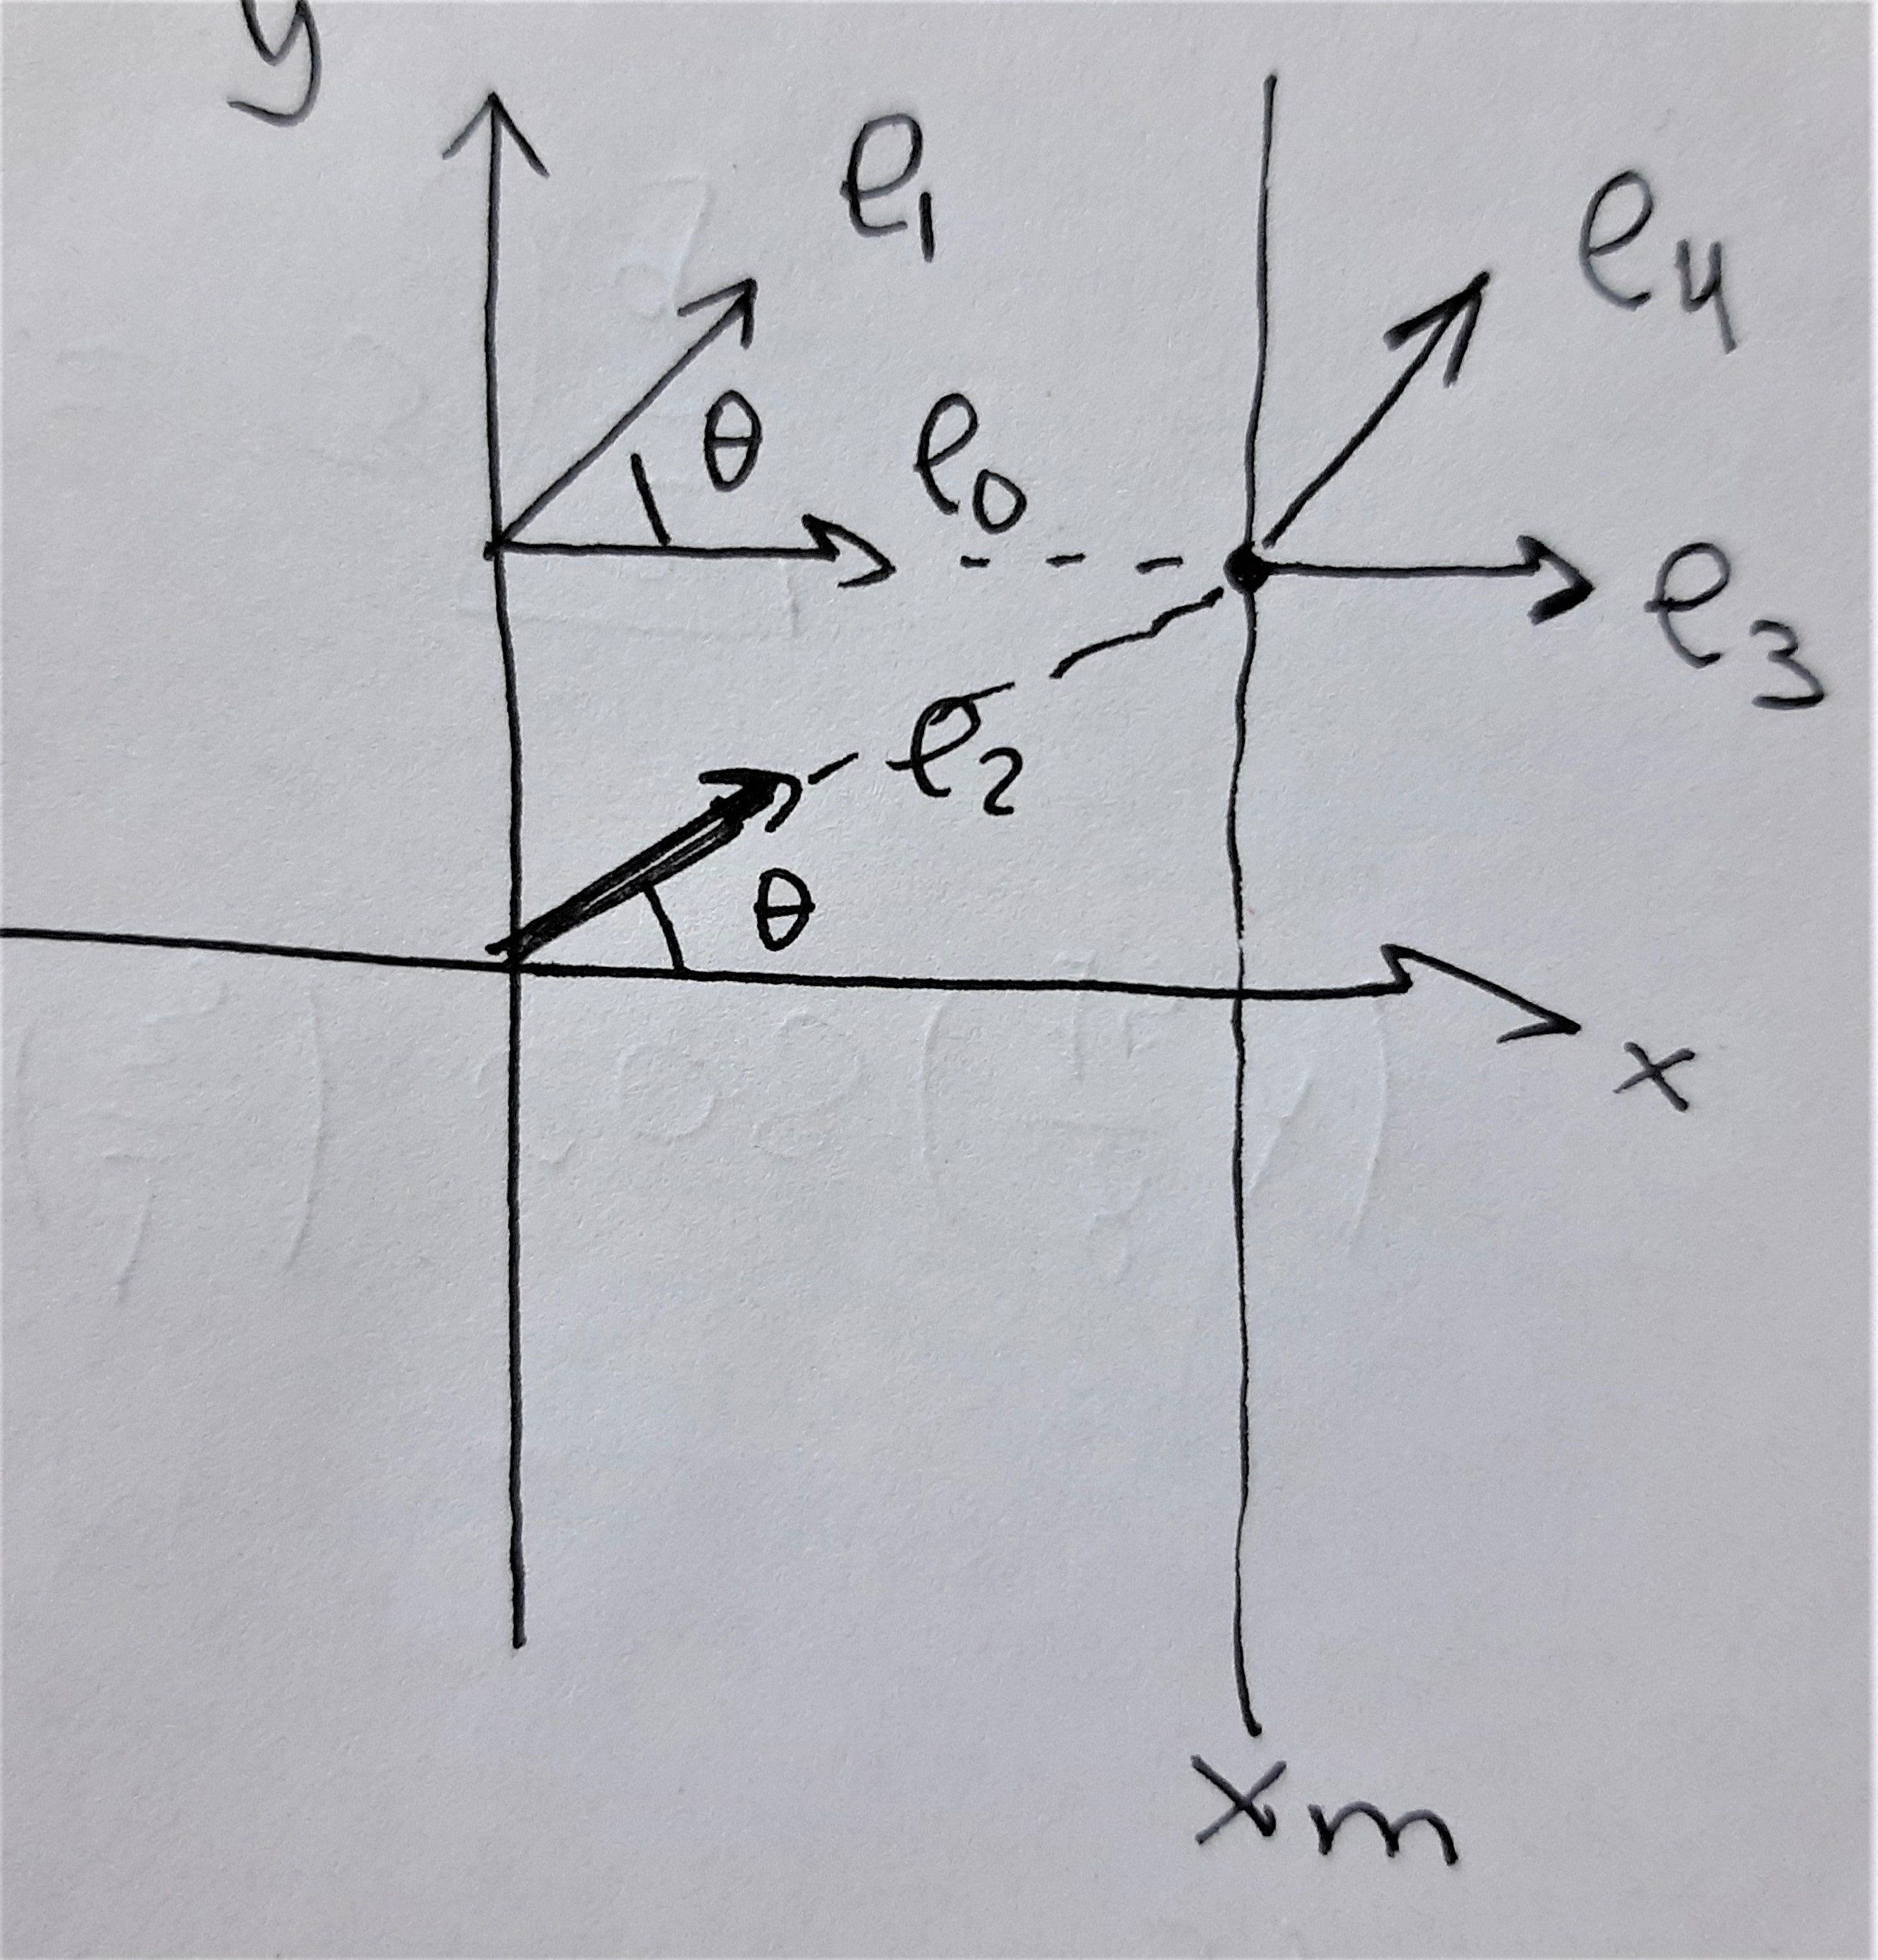 y
e1
e4
θ
e0
e3
e2
θ
x
xm